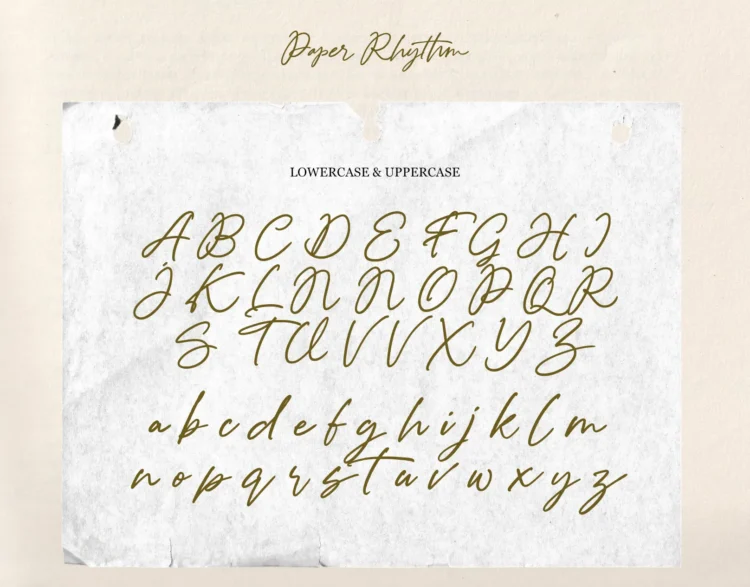 Paper Rhythm
LOWERCASE & UPPERCASE
A B C D E F G H I
J K L N N O P Q R
S T U V V X Y Z
a b c d e f g h i j k l m
n o p q r s t u v w x y z